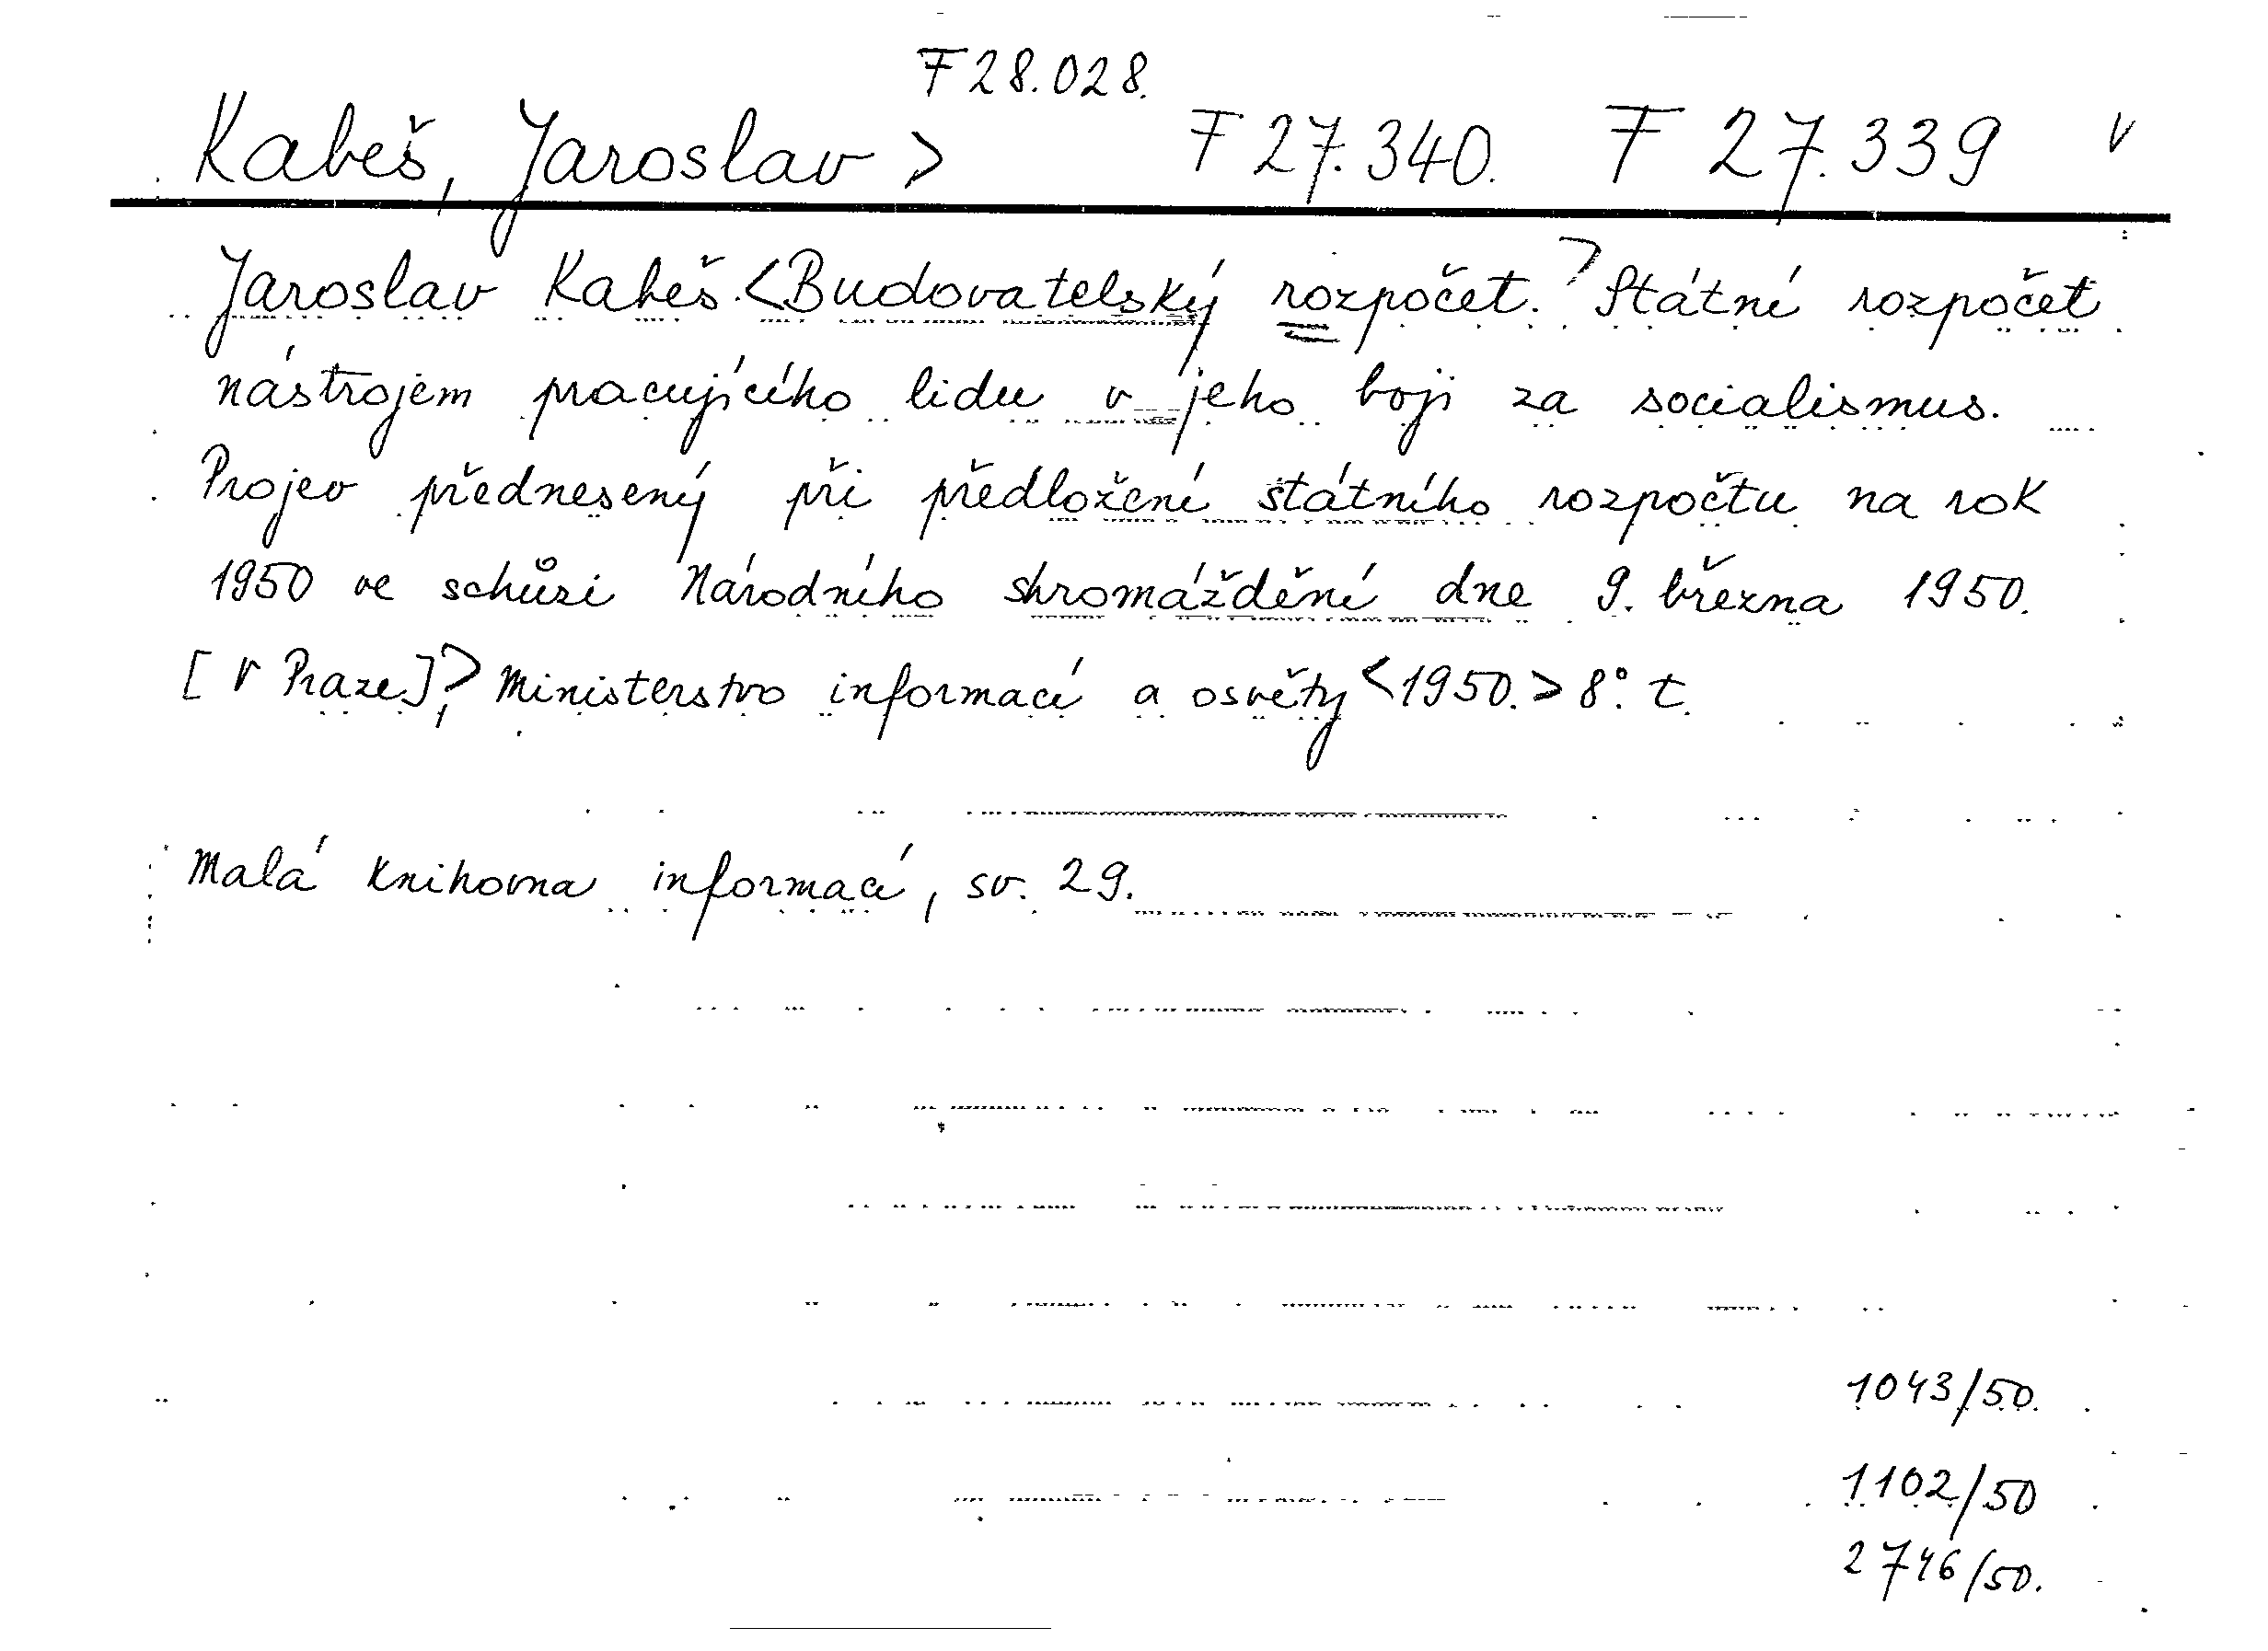 F 28.028.
Kabeš, Jaroslav > F 27.340. F 27.339 v
Jaroslav Kabeš. <Budovatelský rozpočet.> Státní rozpočet
nástrojem pracujícího lidu v jeho boji za socialismus.
Projev přednesený při předložení státního rozpočtu na rok
1950 ve schůzi Národního shromáždění dne 9. března 1950.
[V Praze], > Ministerstvo informací a osvěty <1950.> 8°. t.
Malá knihovna informací, sv. 29.
1043/50.
1102/50
2746/50.